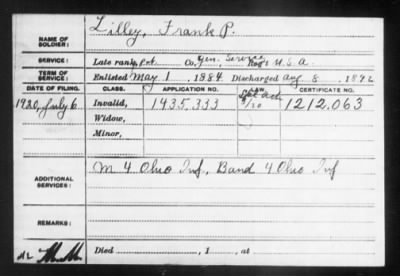 NAME OF SOLDIER: Lilley, Frank P.
SERVICE: Late rank, Pvt. Co. Gen. Service Reg't U.S.A.
TERM OF SERVICE: Enlisted May 1, 1884 Discharged Aug 8, 1892
DATE OF FILING. CLASS. APPLICATION NO. LAW. CERTIFICATE NO.
1920, July 6 Invalid, 1435.333 1212.063
Widow,
Minor,
ADDITIONAL SERVICES: M 4 Ohio Inf., Band 4 Ohio Inf
REMARKS:
Died , 1 , at